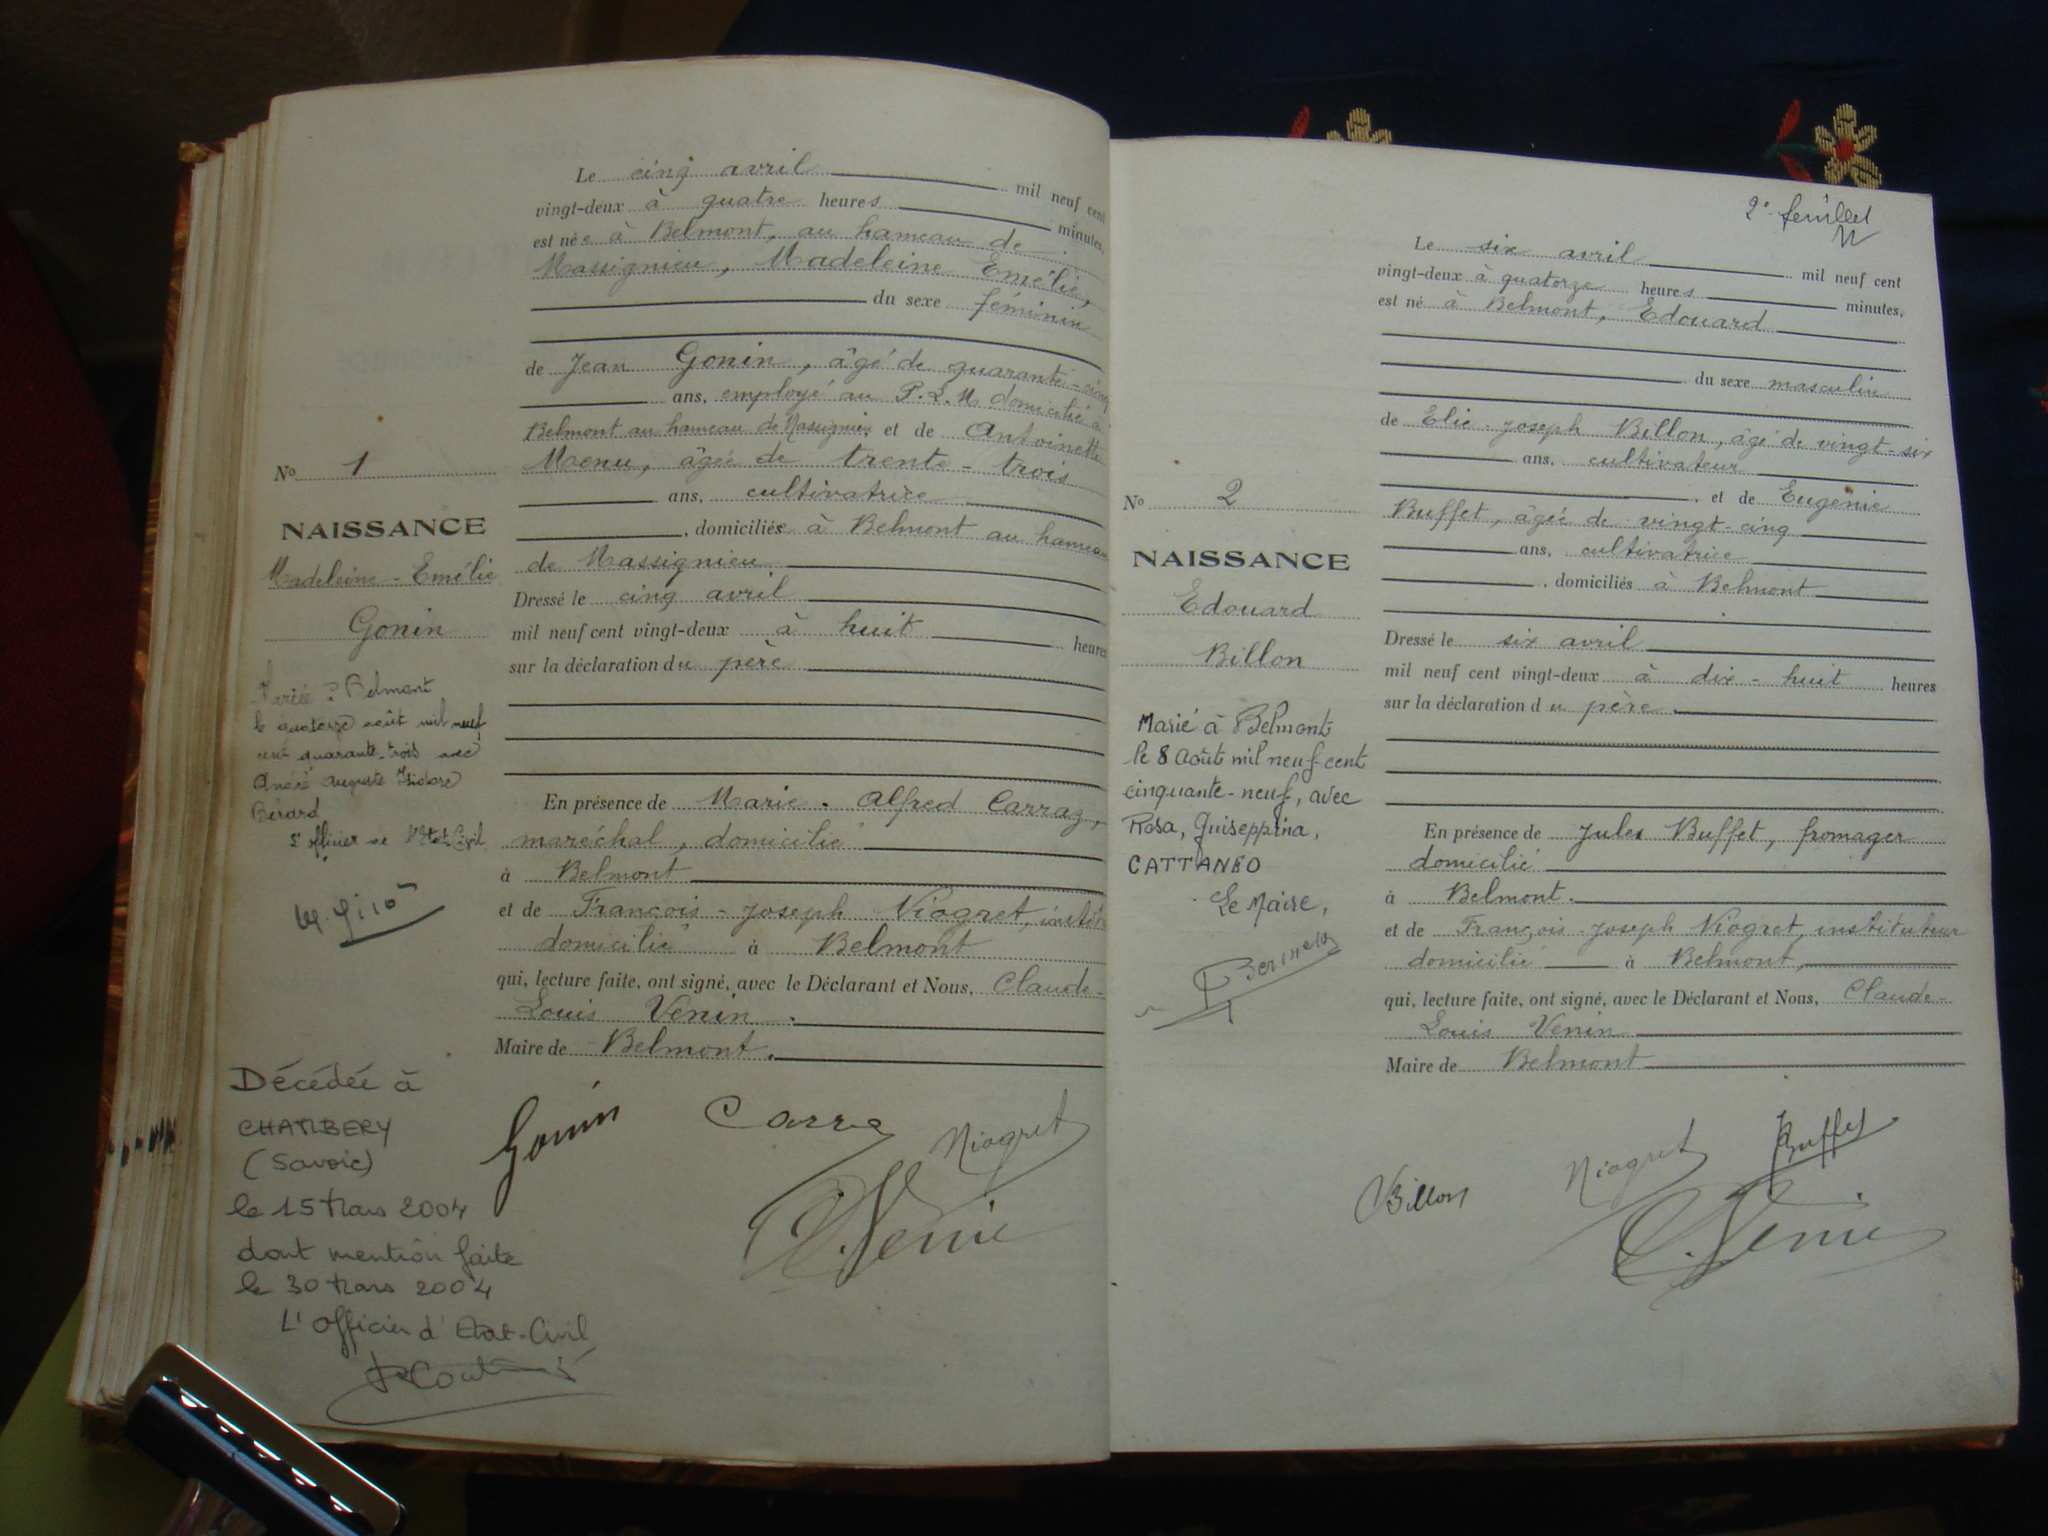 Le cinq avril mil neuf cent
vingt-deux à quatre heures minutes,
est née à Belmont, au hameau de
Massignieu, Madeleine Emélie,
du sexe féminin
de Jean Gonin, âgé de quarante-cinq
ans, employé au P.L.M domicilié à
Belmont au hameau de Massignieu et de Antoinette
Menu, âgée de trente-trois
ans, cultivatrice
, domiciliés à Belmont au hameau
de Massignieu
Dressé le cinq avril
mil neuf cent vingt-deux à huit heures
sur la déclaration du père
En présence de Marie-Alfred Carraz,
maréchal, domicilié
à Belmont
et de François-Joseph Niogret, instit
domicilié à Belmont
qui, lecture faite, ont signé, avec le Déclarant et Nous, Claude-
Louis Venin.
Maire de Belmont.
Gonin Carra Niogret
C. Venin
No 1
NAISSANCE
Madeleine-Emélie
Gonin
Belmont
le quatorze août mil neuf
cent quarante-trois avec
André Auguste Isidore
Bérard
L'officier de l'Etat-Civil
Décédée à
CHAMBERY
(Savoie)
le 15 Mars 2004
dont mention faite
le 30 Mars 2004
L'Officier d'Etat-Civil
2e feuillet
Le six avril mil neuf cent
vingt-deux à quatorze heures minutes,
est né à Belmont, Edouard
du sexe masculin
de Elie-Joseph Billon, âgé de vingt-six
ans, cultivateur
, et de Eugénie
Buffet, âgée de vingt-cinq
ans, cultivatrice
, domiciliés à Belmont
Dressé le six avril
mil neuf cent vingt-deux à dix-huit heures
sur la déclaration du père.
En présence de Jules Buffet, fromager
domicilié
à Belmont.
et de François-Joseph Niogret, instituteur
domicilié à Belmont,
qui, lecture faite, ont signé, avec le Déclarant et Nous, Claude-
Louis Venin
Maire de Belmont
Billon Niogret Buffet
C. Venin
No 2
NAISSANCE
Edouard
Billon
Marié à Belmont
le 8 Août mil neuf cent
cinquante-neuf, avec
Rosa, Guiseppina,
CATTANEO
Le Maire,